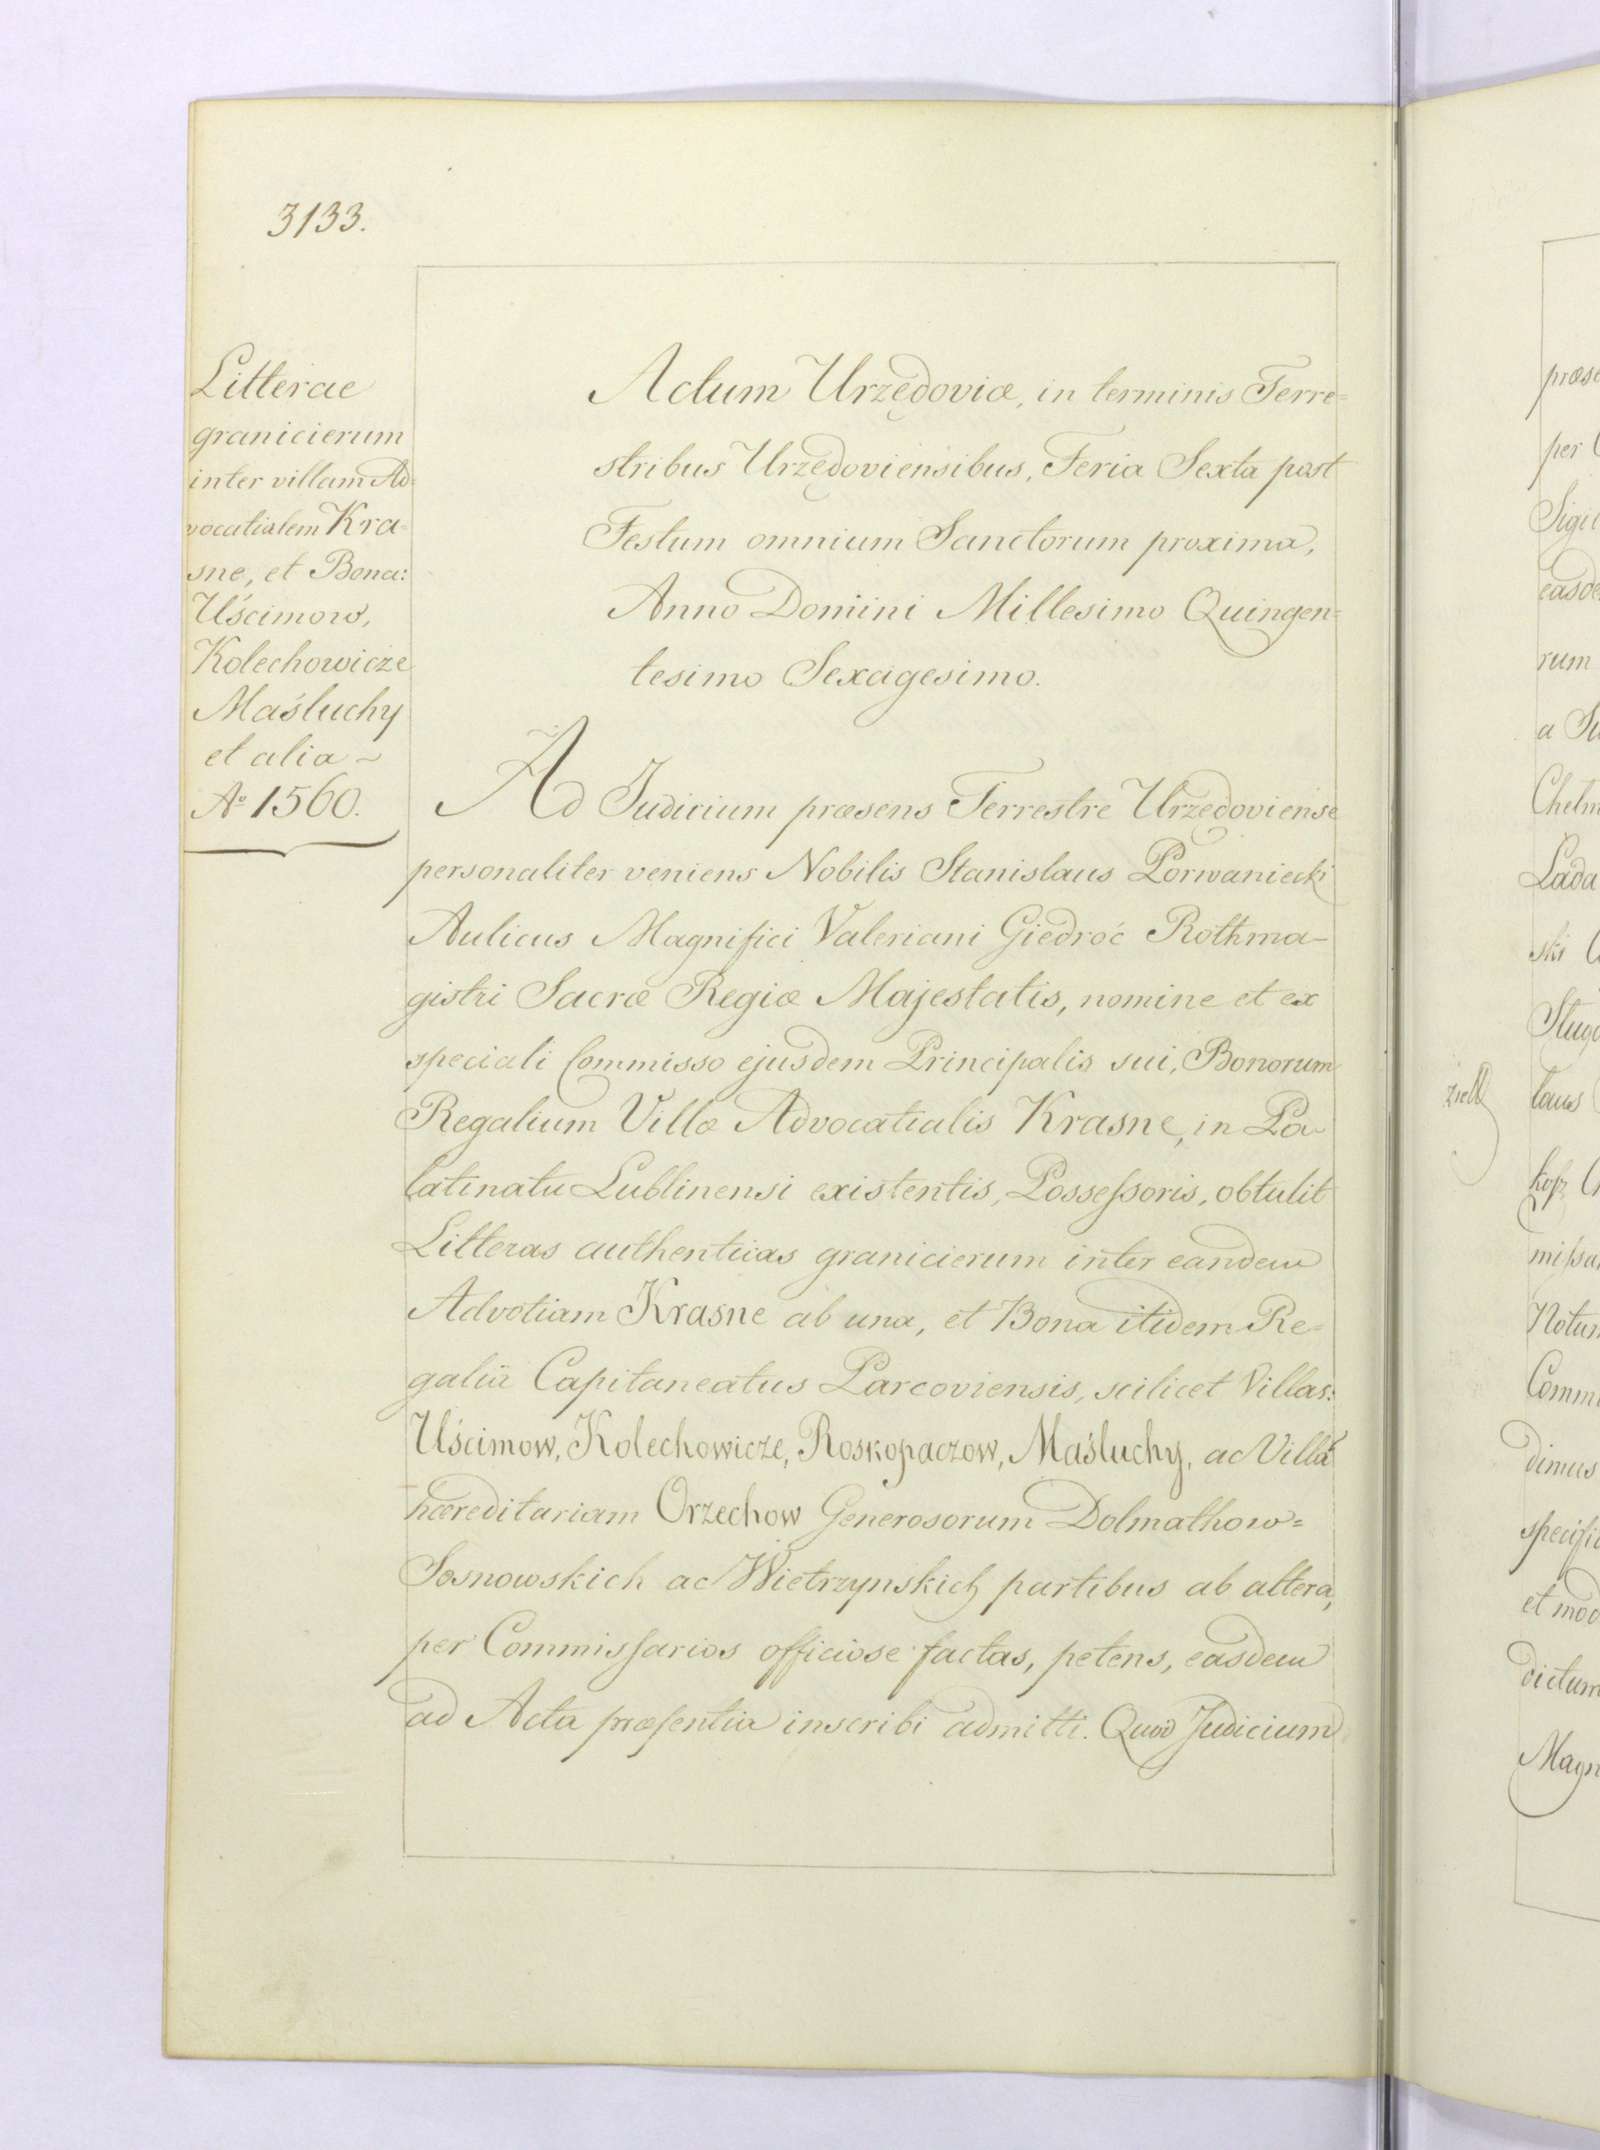 3133.
Litterae
granicierum
inter villam Ad=
vocatialem Kra-
sne, et Bona:
Uścimow,
Kolechowicze
Maśluchy
et alia ~
Aº 1560.
Actum Urzędoviæ, in terminis Terre=
stribus Urzędoviensibus, Feria Sexta post
Festum omnium Sanctorum proxima,
Anno Domini Millesimo Quingen=
tesimo Sexagesimo.
Ad Judicium præsens Terrestre Urzędoviense
personaliter veniens Nobilis Stanislaus Porwaniecki
Aulicus Magnifici Valeriani Giedroć Rothma-
gistri Sacræ Regiæ Majestatis, nomine et ex
speciali Commisso ejusdem Principalis sui, Bonorum
Regalium Villæ Advocatialis Krasne, in Pa-
latinatu Lublinensi existentis, Possessoris, obtulit
Litteras authenticas granicierum inter eandem
Advotiam Krasne ab una, et Bona itidem Re=
galia Capitaneatus Parcoviensis, scilicet Villas:
Uścimow, Kolechowicze, Roskopaczow, Maśluchy, ac Villã
hæreditariam Orzechow Generosorum Dolmathow=
Sosnowskich ac Wietrzynskich partibus ab altera,
per Commissarios officiose factas, petens, easdem
ad Acta præsentia inscribi admitti. Quod Judicium
præs
per
Sigil
easde
rum
a Su
Chelm
Lada
ski
Sług
laus
kosz
missa
Notum
Comm
dimus
specific
et mod
dictum
Magn